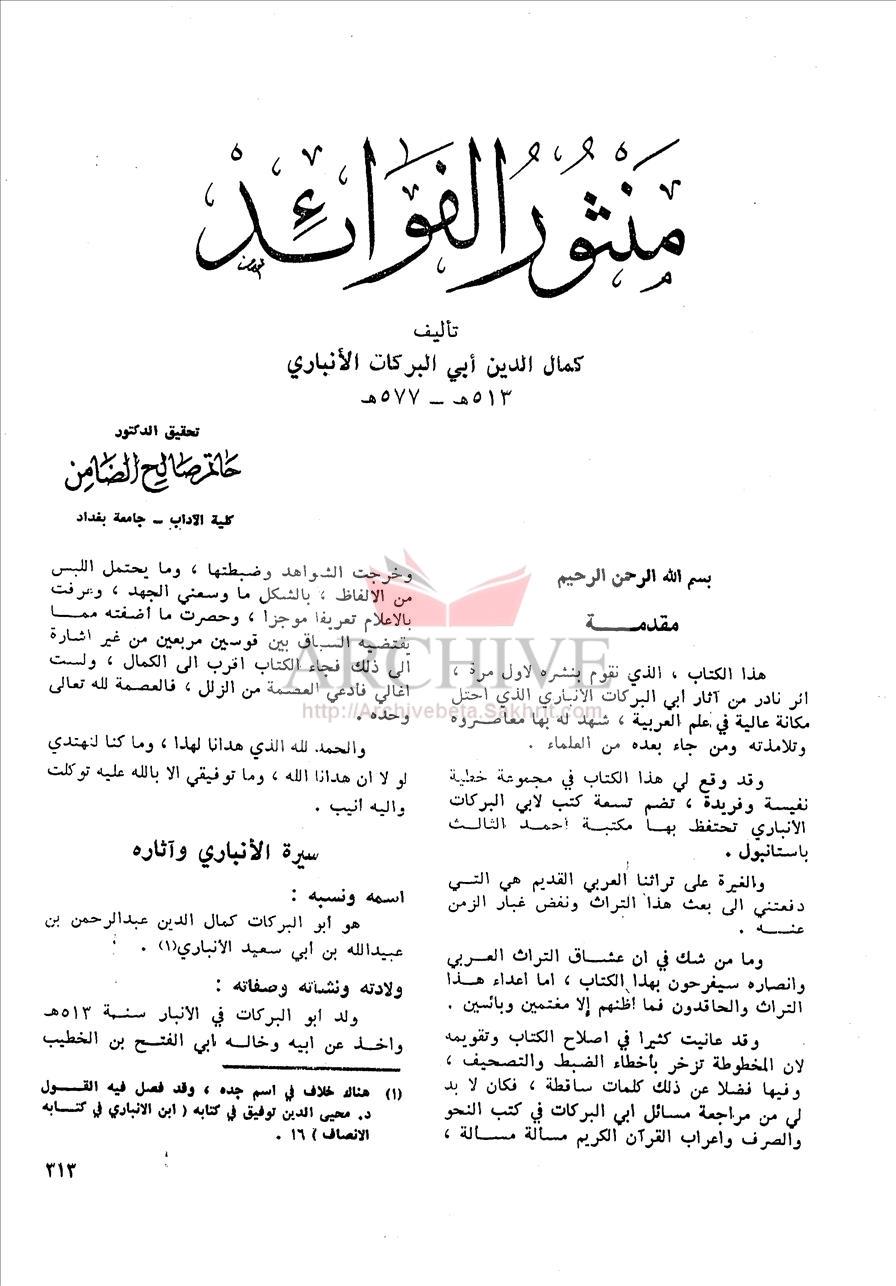 منثور الفوائد
تأليف
كمال الدين أبي البركات الأنباري
٥١٣هـ – ٥٧٧هـ
تحقيق الدكتور
حاتم صالح الضامن
كلية الآداب – جامعة بغداد
بسم الله الرحمن الرحيم
مقدمـــة
هذا الكتاب ، الذي نقوم بنشره لاول مرة ،
اثر نادر من آثار ابي البركات الانباري الذي احتل
مكانة عالية في علم العربية ، شهد له بها معاصروه
وتلامذته ومن جاء بعده من العلماء .
وقد وقع لي هذا الكتاب في مجموعة خطية
نفيسة وفريدة ، تضم تسعة كتب لابي البركات
الانباري تحتفظ بها مكتبة احمد الثالث
باستانبول .
والغيرة على تراثنا العربي القديم هي التي
دفعتني الى بعث هذا التراث ونفض غبار الزمن
عنـــه .
وما من شك في ان عشاق التراث العربي
وانصاره سيفرحون بهذا الكتاب ، اما اعداء هذا
التراث والحاقدون فما أظنهم إلا مغتمين وبائسين .
وقد عانيت كثيرا في اصلاح الكتاب وتقويمه
لان المخطوطة تزخر بأخطاء الضبط والتصحيف ،
وفيها فضلا عن ذلك كلمات ساقطة ، فكان لا بد
لي من مراجعة مسائل ابي البركات في كتب النحو
والصرف واعراب القرآن الكريم مسألة مسألة ،
وخرجت الشواهد وضبطتها ، وما يحتمل اللبس
من الالفاظ ، بالشكل ما وسعني الجهد ، وعرفت
بالاعلام تعريفا موجزا ، وحصرت ما أضفته ممـا
يقتضيه السياق بين قوسين مربعين من غير اشارة
الى ذلك فجاء الكتاب اقرب الى الكمال ، ولست
اغالي فادعي العصمة من الزلل ، فالعصمة لله تعالى
وحده .
والحمد لله الذي هدانا لهذا ، وما كنا لنهتدي
لو لا ان هدانا الله ، وما توفيقي الا بالله عليه توكلت
واليه أنيب .
سيرة الأنباري وآثاره
اسمه ونسبه :
هو أبو البركات كمال الدين عبدالرحمن بن
عبيدالله بن أبي سعيد الأنباري(١) .
ولادته ونشاته وصفاته :
ولد ابو البركات في الانبار سنة ٥١٣هـ
واخذ عن ابيه وخاله ابي الفتح بن الخطيب
(١) هناك خلاف في اسم جده ، وقد فصل فيه القول
د. محيي الدين توفيق في كتابه ( ابن الانباري في كتابه
الانصاف ) ١٦ .
٣١٣
ARCHIVE
http://Archivebeta.Sakhrit.com